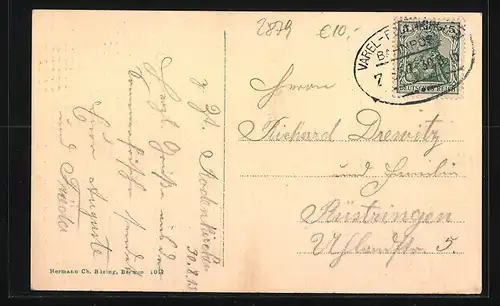 2879
€10,-
VAREL-
BAHNPOST
Herrn
Richard Drewitz
und Familie
Rüstringen
Uhlandstr. 5.
z. Zt. Rodenkirchen
30.8.13
Herzl. Grüße aus der
Sommerfrische sendet
Eure Auguste
und Frieda
Hermann Ch. Büsing, Bremen